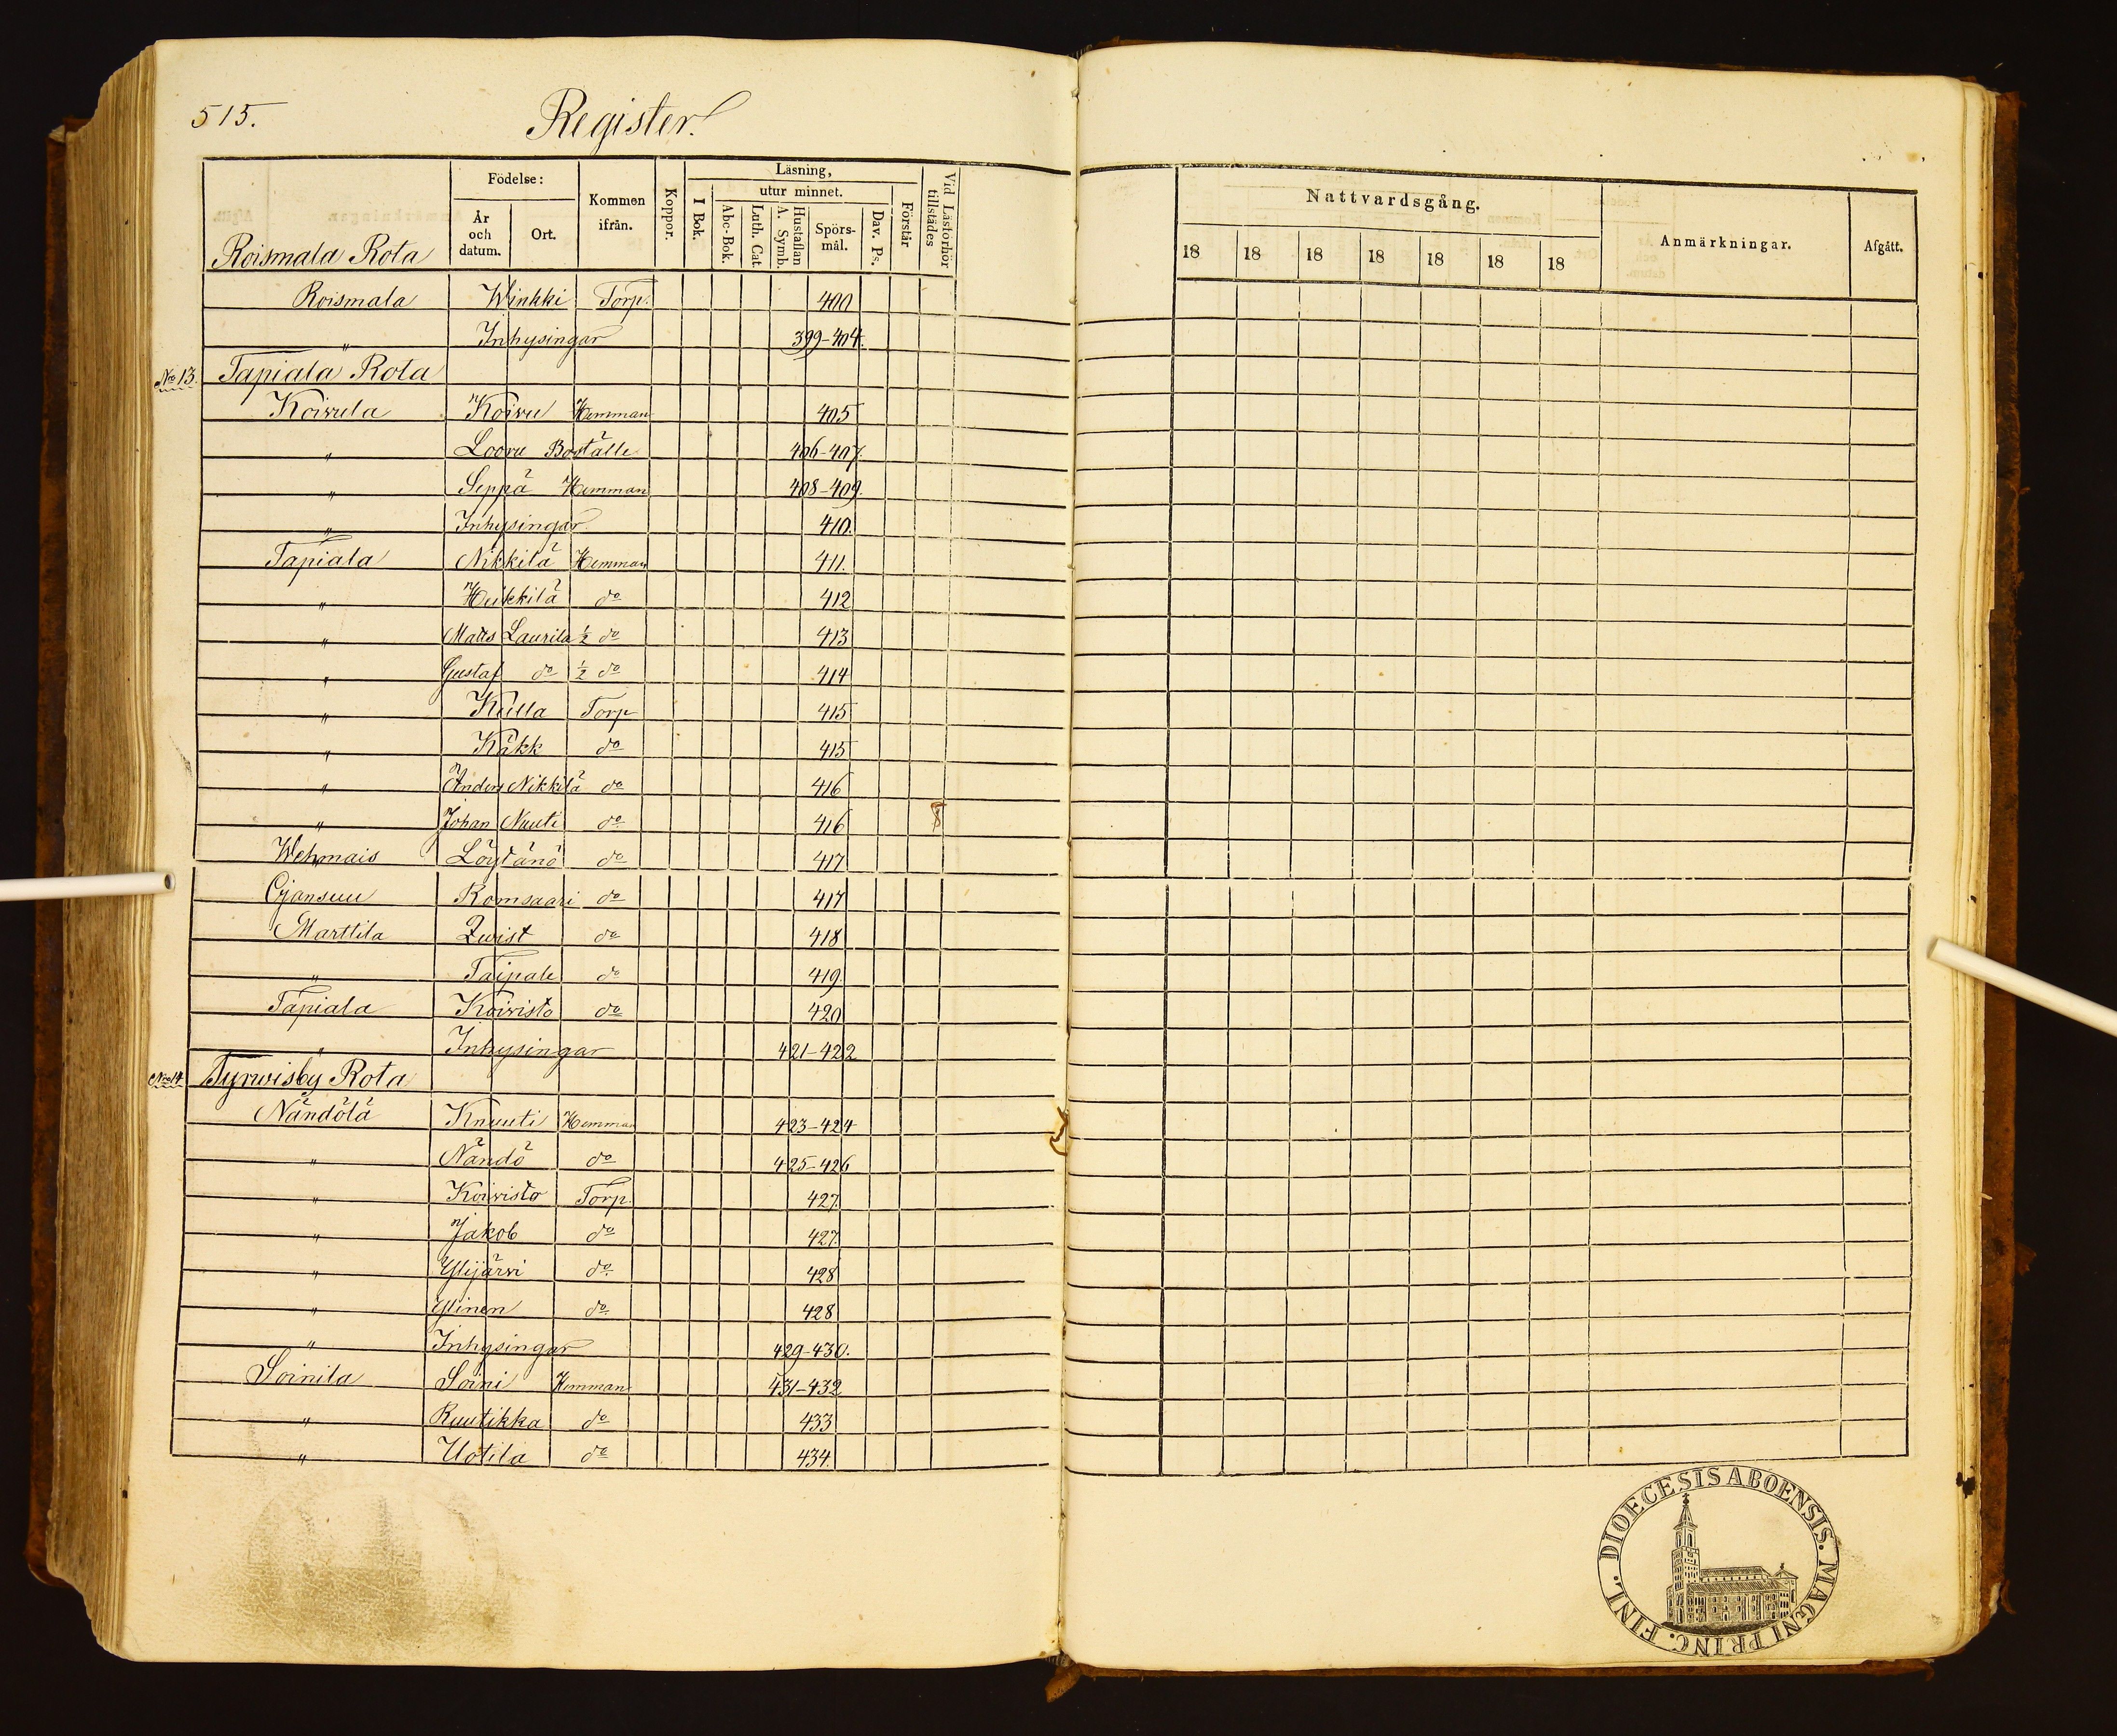 515.
Register.
Roismala Rota
Födelse:
År och datum.
Ort.
Kommen ifrån.
Koppor.
Läsning,
I Bok.
utur minnet.
Abc-Bok.
Luth. Cat.
Hustaflan A. Symb.
Spörsmål.
Dav. Ps.
Förstår
Vid Läsförhör tillstädes
Roismala Winkki Torp. 400
" Inhysingar 399-404.
No 13. Tapiala Rota
Koivula Koivu Hemman 405
" Looru Boställe 406-407.
" Seppä Hemman 408-409.
" Inhysingar 410.
Tapiala Nikkilä Hemman 411.
" Heikkilä do 412
" Matts Laurila 1/2 do 413
" Gustaf do 1/2 do 414
" Kulla Torp 415
" Käkk do 415
" Anders Nikkilä do 416
" Johan Nuuti do 416
Wehmais Löytänö do 417
Ojansuu Romsaari do 417
Marttila Qwist do 418
" Taipale do 419.
Tapiala Koivisto do 420
" Inhysingar 421-422
No 14. Tyrwisby Rota
Nändölä Knuuti Hemman 423-424
" Nändö do 425-426
" Koivisto Torp. 427.
" Jakob do 427.
" Ylijärvi do. 428
" Ylinen do. 428
" Inhysingar 429-430.
Soinila Soini Hemman 431-432
" Ruutikka do 433
" Uotila do 434.
Nattvardsgång.
18 18 18 18 18 18 18
Anmärkningar.
Afgått.
DIOECESIS ABOENSIS. MAGNI PRINC. FINL.